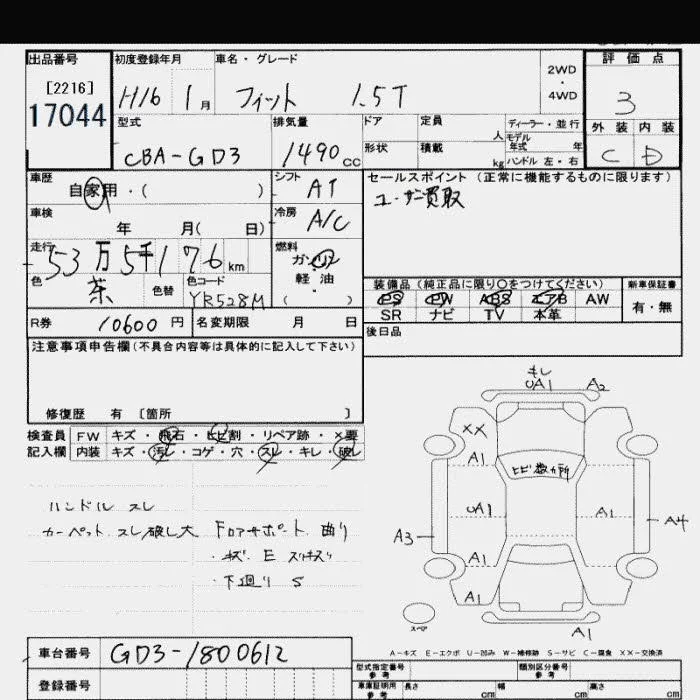 出品番号 初度登録年月 車名・グレード 2WD・4WD 評価点
[2216] H16 1月 フィット 1.5T 3
17044 型式 排気量 ドア 定員 人 ディーラー・並行 外装 内装
CBA-GD3 1490cc 形状 積載 kg モデル年式 年 ハンドル 左・右 C D
車歴 シフト セールスポイント (正常に機能するものに限ります)
自家用・( ) AT ユーザー買取
車検 年 月( 日) 冷房 A/C
走行 53万5千176km 燃料 ガソリン
色 茶 色替 色コード YR528M 軽油 ( )
装備品 (純正品に限り○をつけてください) 新車保証書
PS PW ABS エアB AW 有・無
SR ナビ TV 本革
R券 10600円 名変期限 月 日 後日品
注意事項申告欄(不具合内容等は具体的に記入して下さい)
修復歴 有 [箇所 ]
検査員 FW キズ・飛石・ヒビ割・リペア跡・×要
記入欄 内装 キズ・汚レ・コゲ・穴・スレ・キレ・破レ
ハンドル スレ
カーペット スレ破レ大 Fロアサポート 曲り
・キズ E
・下廻り S
キレ
UA1 A2
XX
A1
ヒビ数カ所
UA1 A1
A3 A4
A1
A1
A1
スペア
A-キズ E-エクボ U-凹み W-補修跡 S-サビ C-腐食 XX-交換済
車台番号 GD3-1800612
型式指定番号 参考 類別区分番号 参考
登録番号 車庫証明用 参考 長さ cm 幅 cm 高さ cm